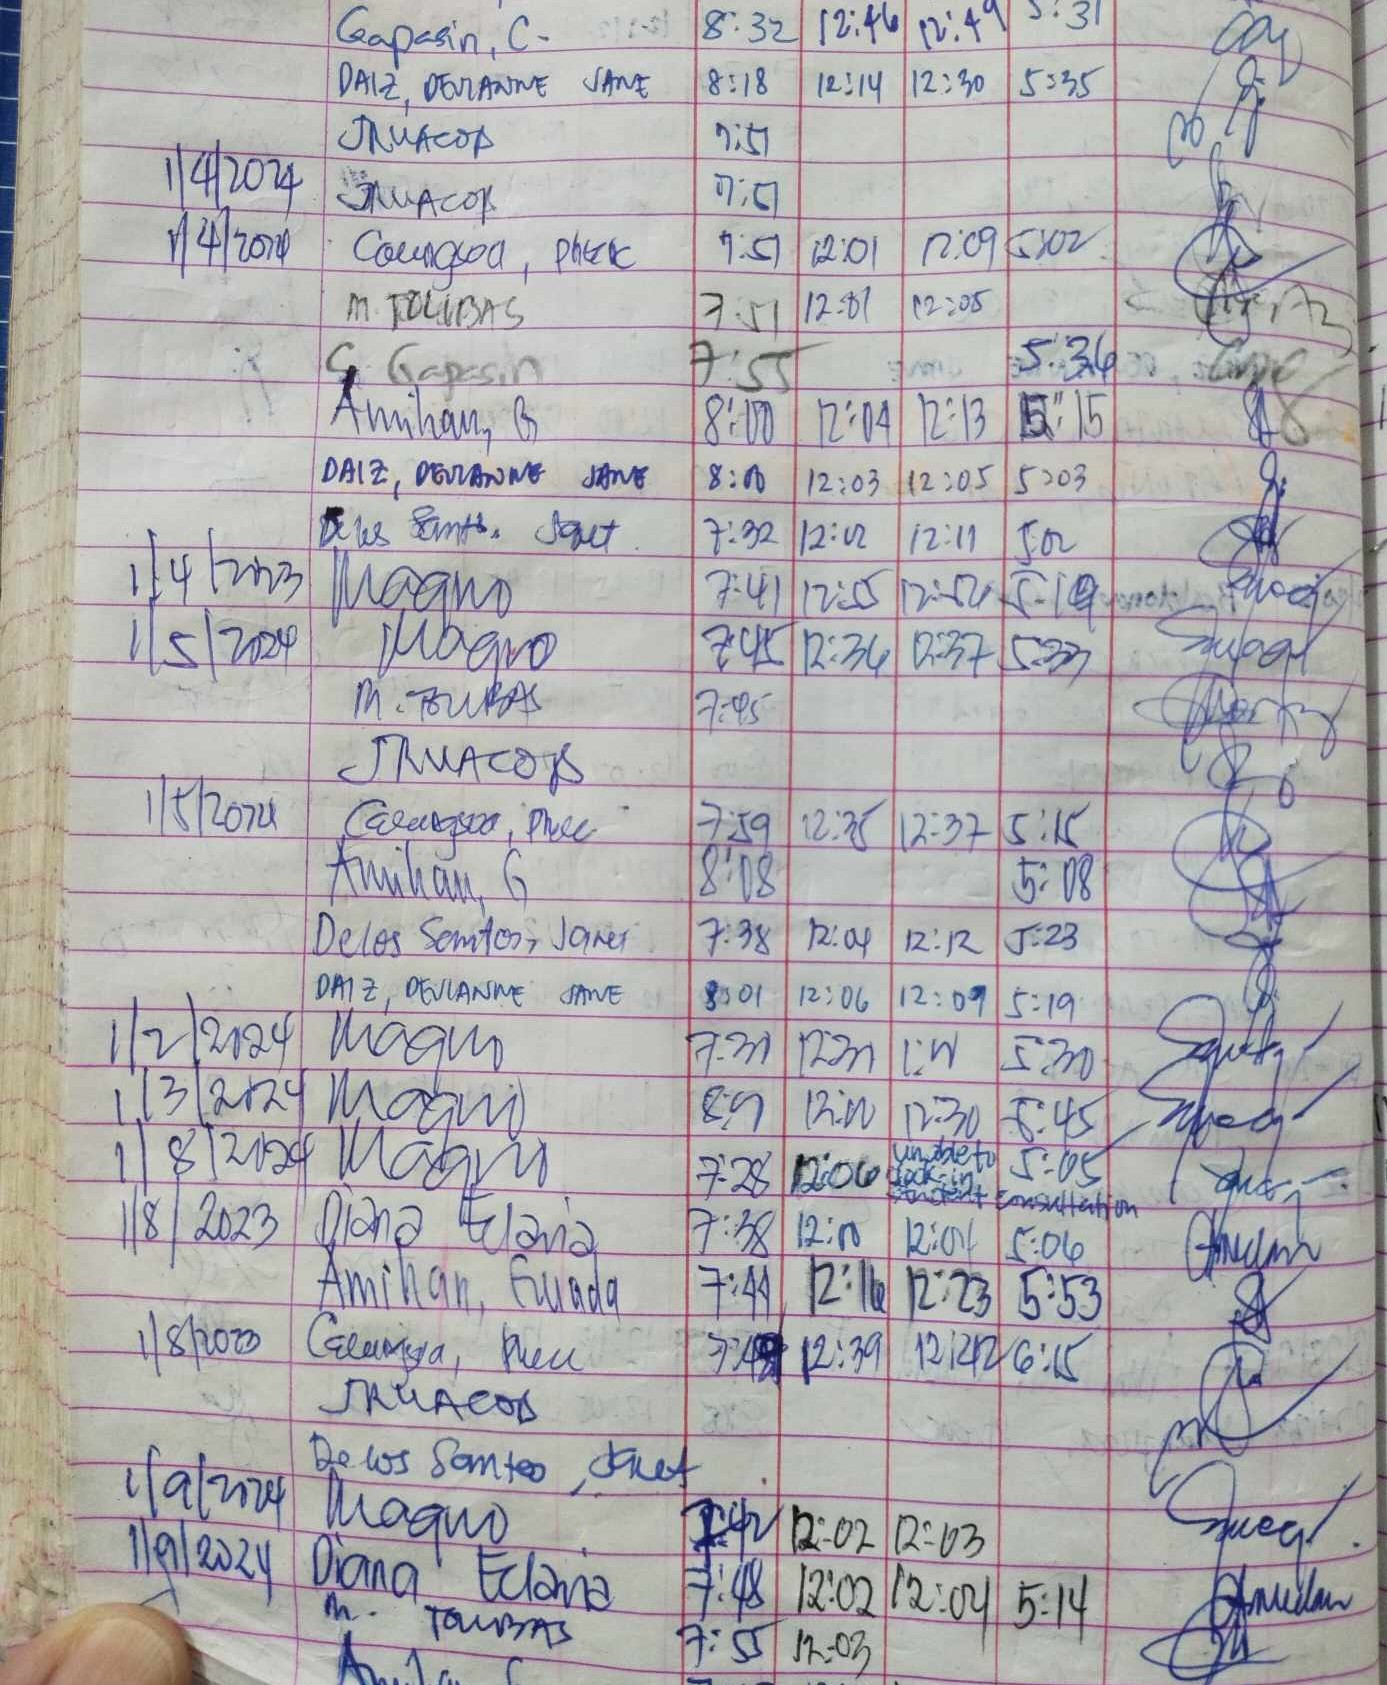 Gapasin, C. 8:32 12:46 12:49 5:31
DAIZ, DEVIANNE JANE 8:18 12:14 12:30 5:35
JRUACOB 7:51
1/4/2024 JRUACOB 7:51
1/4/2024 7:51 12:01 12:09 5:02
M. TOLIBAS 7:51 12:01 12:05
C. Gapasin 7:55 5:36
Amihan, G 8:00 12:04 12:13 5:15
DAIZ, DEVIANNE JANE 8:00 12:03 12:05 5:03
Delos Santos, Janet 7:32 12:02 12:11 5:02
1/4/2023 Magno 7:41 12:55 12:56 5:19
1/5/2024 Magno 7:45 12:36 12:37 5:33
M. TOLIBAS 7:45
JRUACOB
1/5/2024 7:59 12:35 12:37 5:15
Amihan, G 8:08 5:08
Delos Santos, Janet 7:38 12:04 12:12 5:23
DAIZ, DEVIANNE JANE 8:01 12:06 12:09 5:19
1/2/2024 Magno 7:31 12:31 5:30
1/3/2024 Magno 12:00 12:30 5:45
1/8/2024 Magno 7:28 12:06 unable to clock-in student consultation 5:05
1/8/2023 Diana Eclania 7:38 12:00 12:01 5:06
Amihan, 7:44 12:16 12:23 5:53
1/8/2023 12:39 12:42 6:15
JRUACOB
Delos Santos, Janet
1/9/2024 Magno 7:42 12:02 12:03
1/9/2024 Diana Eclania 7:48 12:02 12:04 5:14
M. TOLIBAS 7:55 12:03
Amihan, G